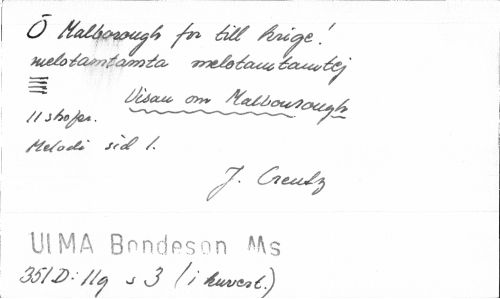 Ö Malborough for till krige!
melotamtamta melotamtamtej
Visan om Malbourough
11 strofer.
Melodi sid 1.
J. Creutz
ULMA Bondeson Ms
351 D: 11g s 3 (i kuvert.)